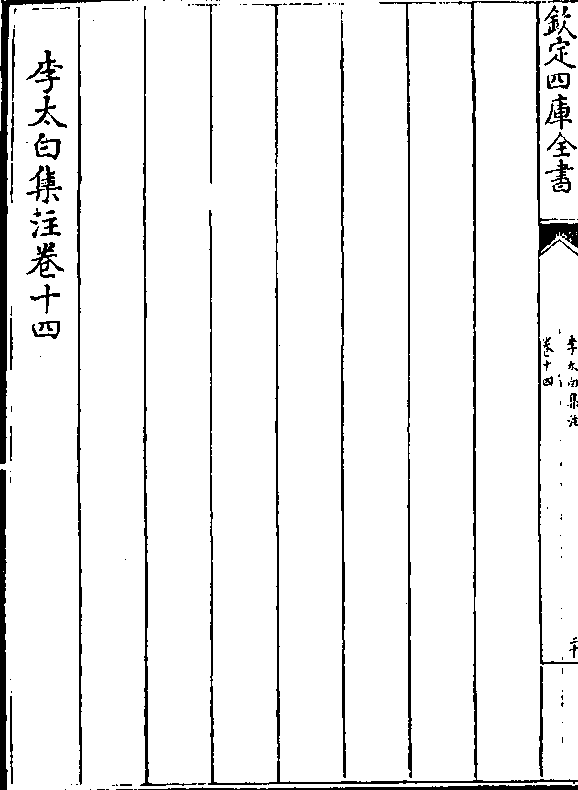 欽定四庫全書
李太白集注
卷十四
二十
李太白集注卷十四